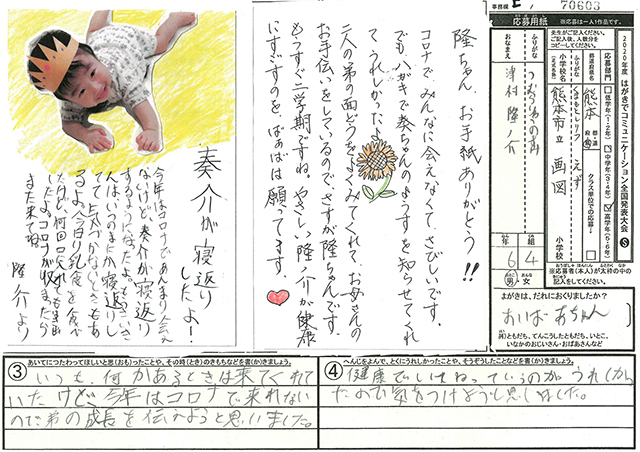 事務欄
70603
奏介が寝返り
したよー!
今年はコロナであんまり会え
ないけど、奏介が寝返り
するようになったよ。
人はいつのまにか寝返りし
てて、
るよ。今日り乳食を食べ
また来てね。
隆介より
隆ちゃん、お手紙ありがとう!!
コロナでみんなに会えなくてさびしいです。
でもハガキで奏ちゃんのようすを知らせてくれ
て、うれしかったよ。
二人の弟の面どうをよくみてくれて、お母さんの
お手伝いをしているので、さすが隆ちゃんです。
もうすぐ二学期ですね。やさしい隆ノ介が健康
にすごすのを、ばぁばは願ってます。
応募用紙
※応募は一人1作品です。
2020年度 はがきでコミュニケーション全国発表大会 S
先生がご記入ください。
ご記入後、人数分を
コピーしてください。
応募部門
低学年(1・2年)
中学年(3・4年)
高学年(5・6年)
都道府県名
熊本
クラス単位での応募
小学校名
(正式名称)
ふりがな
くまもとしりつ えず
熊本市立 画図
小学校
ふりがな
おなまえ
つむらりゅうのすけ
津村隆ノ介
年
6
組
4
男・女
※応募者(本人)が太枠の中の
記入をしてください。
よがきは、だれにおくりましたか?
おばあちゃん
例)ともだち、てんこうしたともだち、いとこ、
いなかのおじいさん・おばあさんなど
③ あいてにつたわってほしいと思(おも)ったことや、その時(とき)のきもちなどを書(か)きましょう。
いつも、何かあるときは来てくれて
いたけど、今年はコロナで来れない
ので弟の成長を伝えようと思いました。
④ へんじをよんで、とくにうれしかったことや、そうぞうしたことなどを書(か)きましょう。
健康でいてねっていうのがうれしかっ
たので気をつけようと思いました。